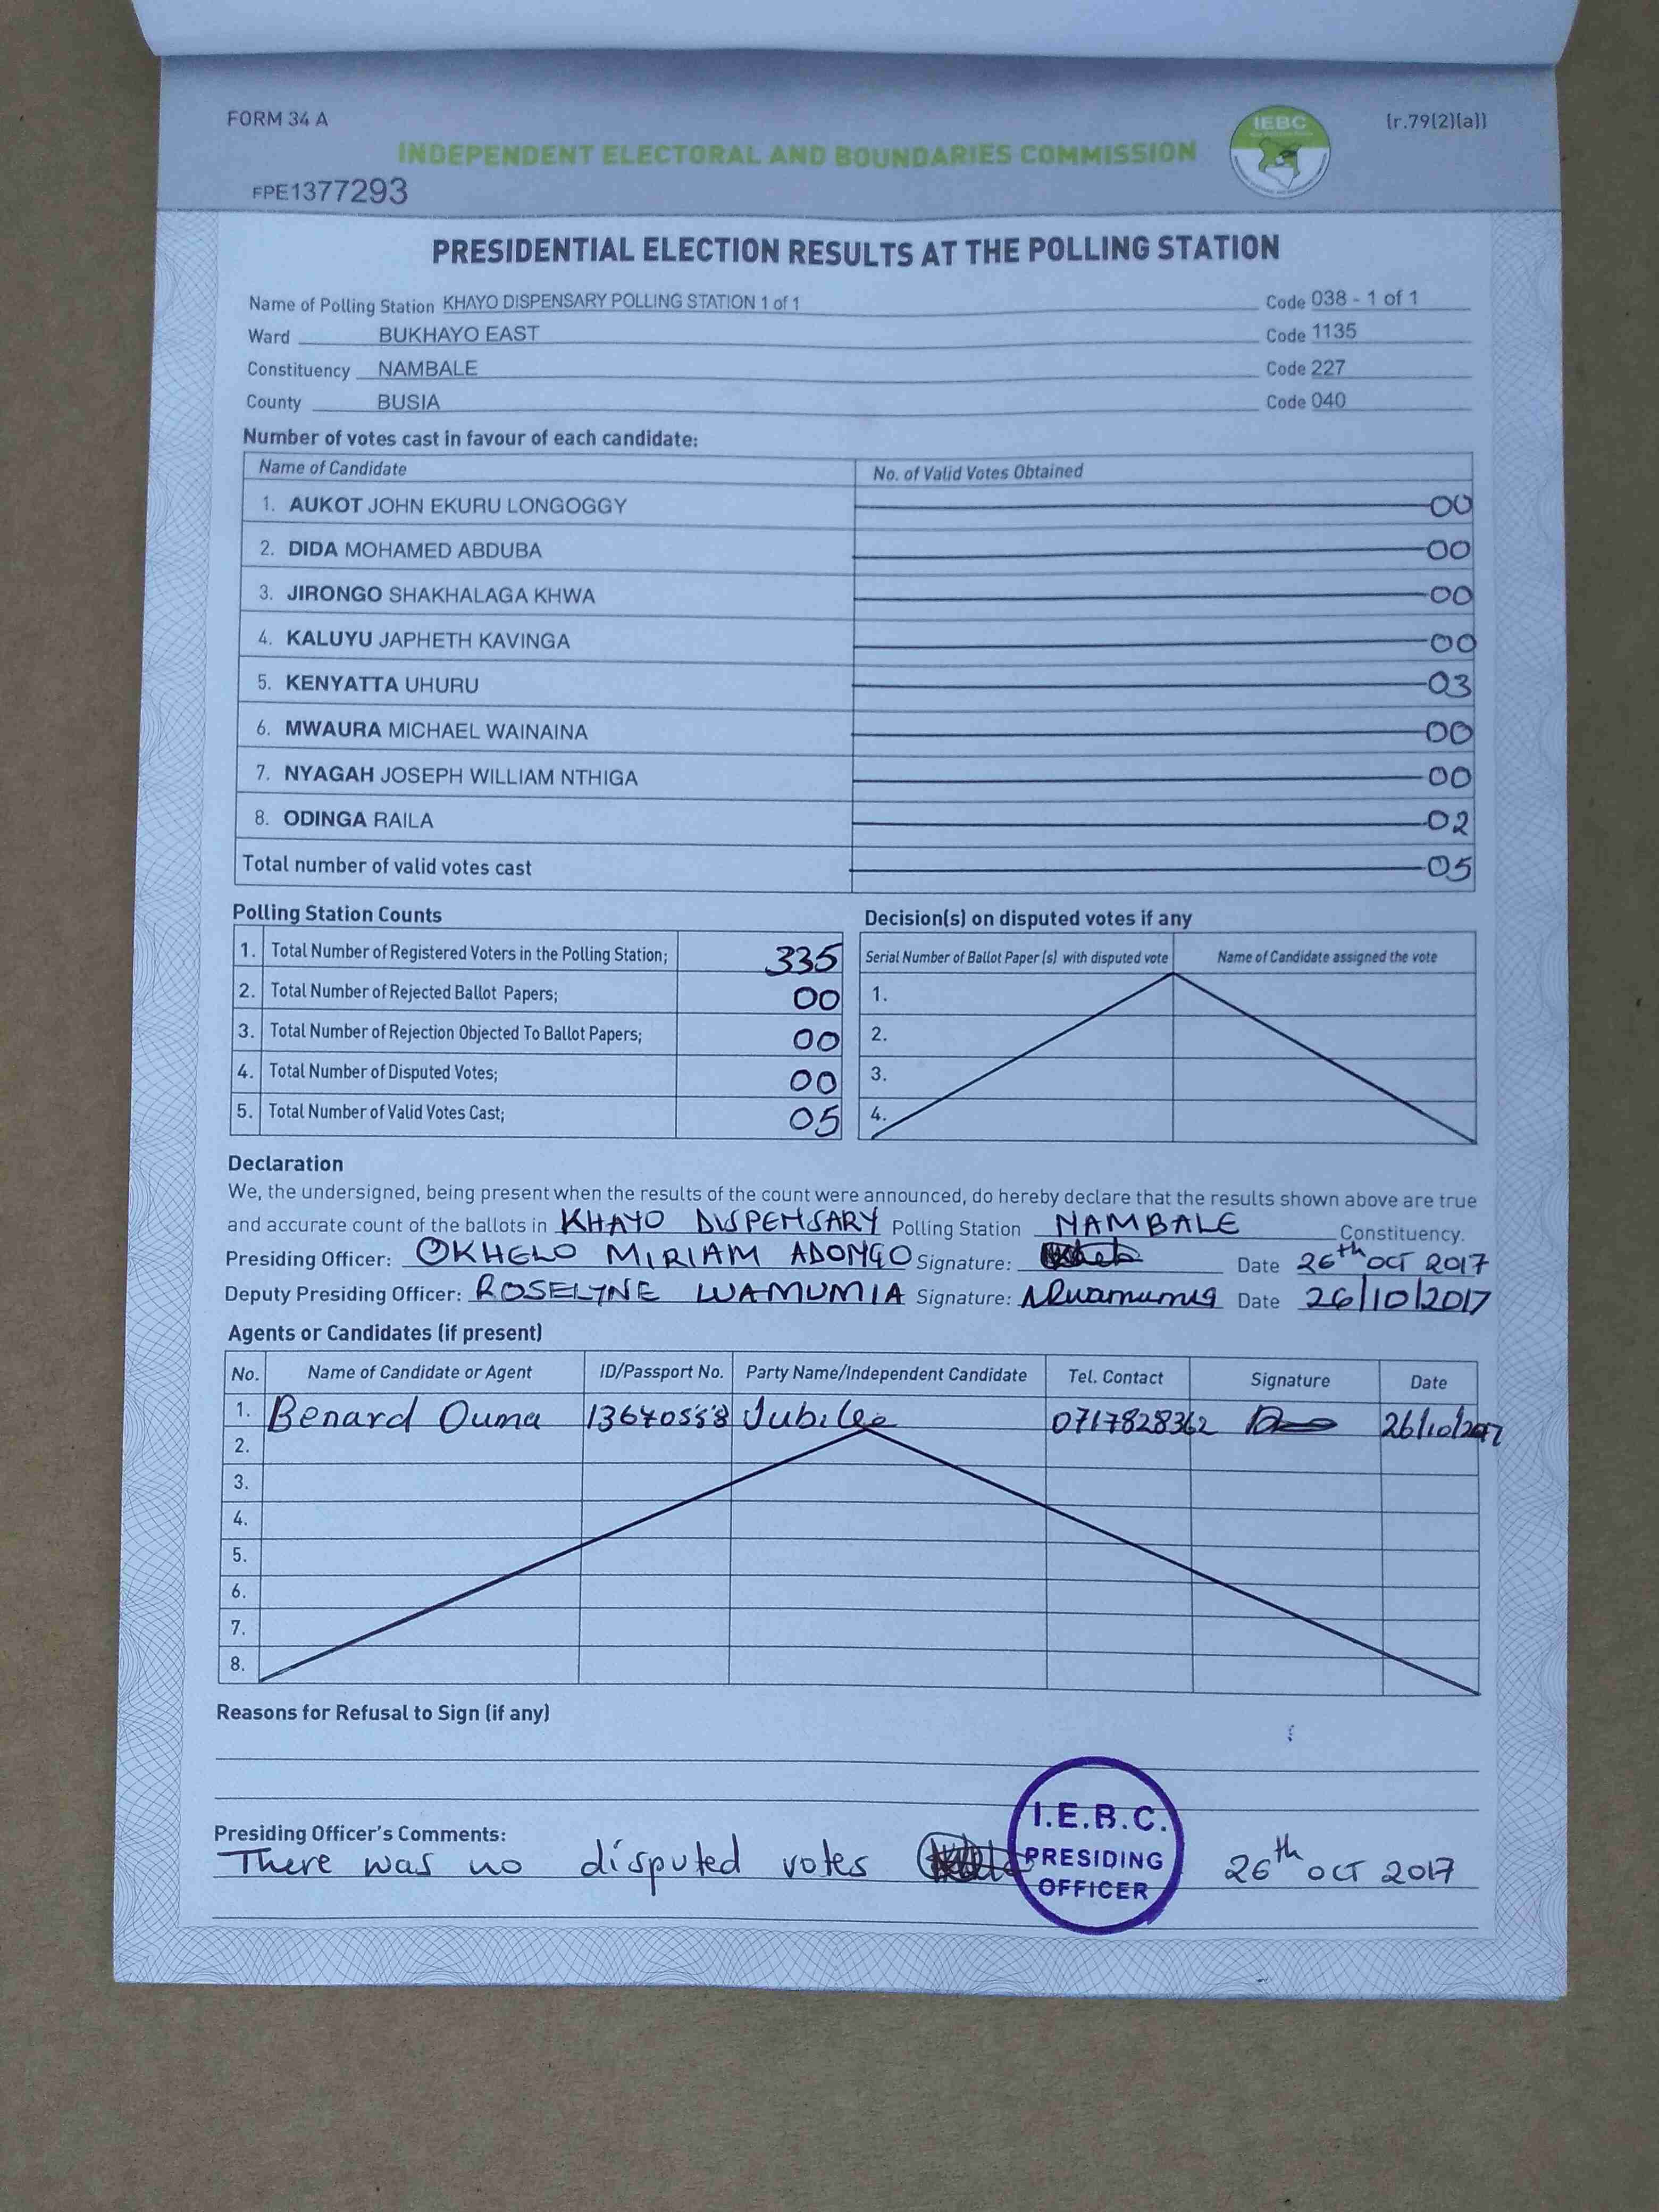 FORM 34 A
IEBC
(r.79(2)(a))
INDEPENDENT ELECTORAL AND BOUNDARIES COMMISSION
FPE1377293
PRESIDENTIAL ELECTION RESULTS AT THE POLLING STATION
Name of Polling Station KHAYO DISPENSARY POLLING STATION 1 of 1 Code 038 - 1 of 1
Ward BUKHAYO EAST Code 1135
Constituency NAMBALE Code 227
County BUSIA Code 040
Number of votes cast in favour of each candidate:
Name of Candidate No. of Valid Votes Obtained
1. AUKOT JOHN EKURU LONGOGGY 00
2. DIDA MOHAMED ABDUBA 00
3. JIRONGO SHAKHALAGA KHWA 00
4. KALUYU JAPHETH KAVINGA 00
5. KENYATTA UHURU 03
6. MWAURA MICHAEL WAINAINA 00
7. NYAGAH JOSEPH WILLIAM NTHIGA 00
8. ODINGA RAILA 02
Total number of valid votes cast 05
Polling Station Counts
1. Total Number of Registered Voters in the Polling Station; 335
2. Total Number of Rejected Ballot Papers; 00
3. Total Number of Rejection Objected To Ballot Papers; 00
4. Total Number of Disputed Votes; 00
5. Total Number of Valid Votes Cast; 05
Decision(s) on disputed votes if any
Serial Number of Ballot Paper (s) with disputed vote Name of Candidate assigned the vote
1.
2.
3.
4.
Declaration
We, the undersigned, being present when the results of the count were announced, do hereby declare that the results shown above are true
and accurate count of the ballots in KHAYO DISPENSARY Polling Station NAMBALE Constituency.
Presiding Officer: OKHELO MIRIAM ADONGO Signature: Date 26th OCT 2017
Deputy Presiding Officer: ROSELYNE WAMUMIA Signature: Date 26/10/2017
Agents or Candidates (if present)
No. Name of Candidate or Agent ID/Passport No. Party Name/Independent Candidate Tel. Contact Signature Date
1. Benard Ouma Jubilee 0717828362 26/10/2017
2.
3.
4.
5.
6.
7.
8.
Reasons for Refusal to Sign (if any)
Presiding Officer's Comments:
There was no disputed votes 26th OCT 2017
I.E.B.C.
PRESIDING
OFFICER